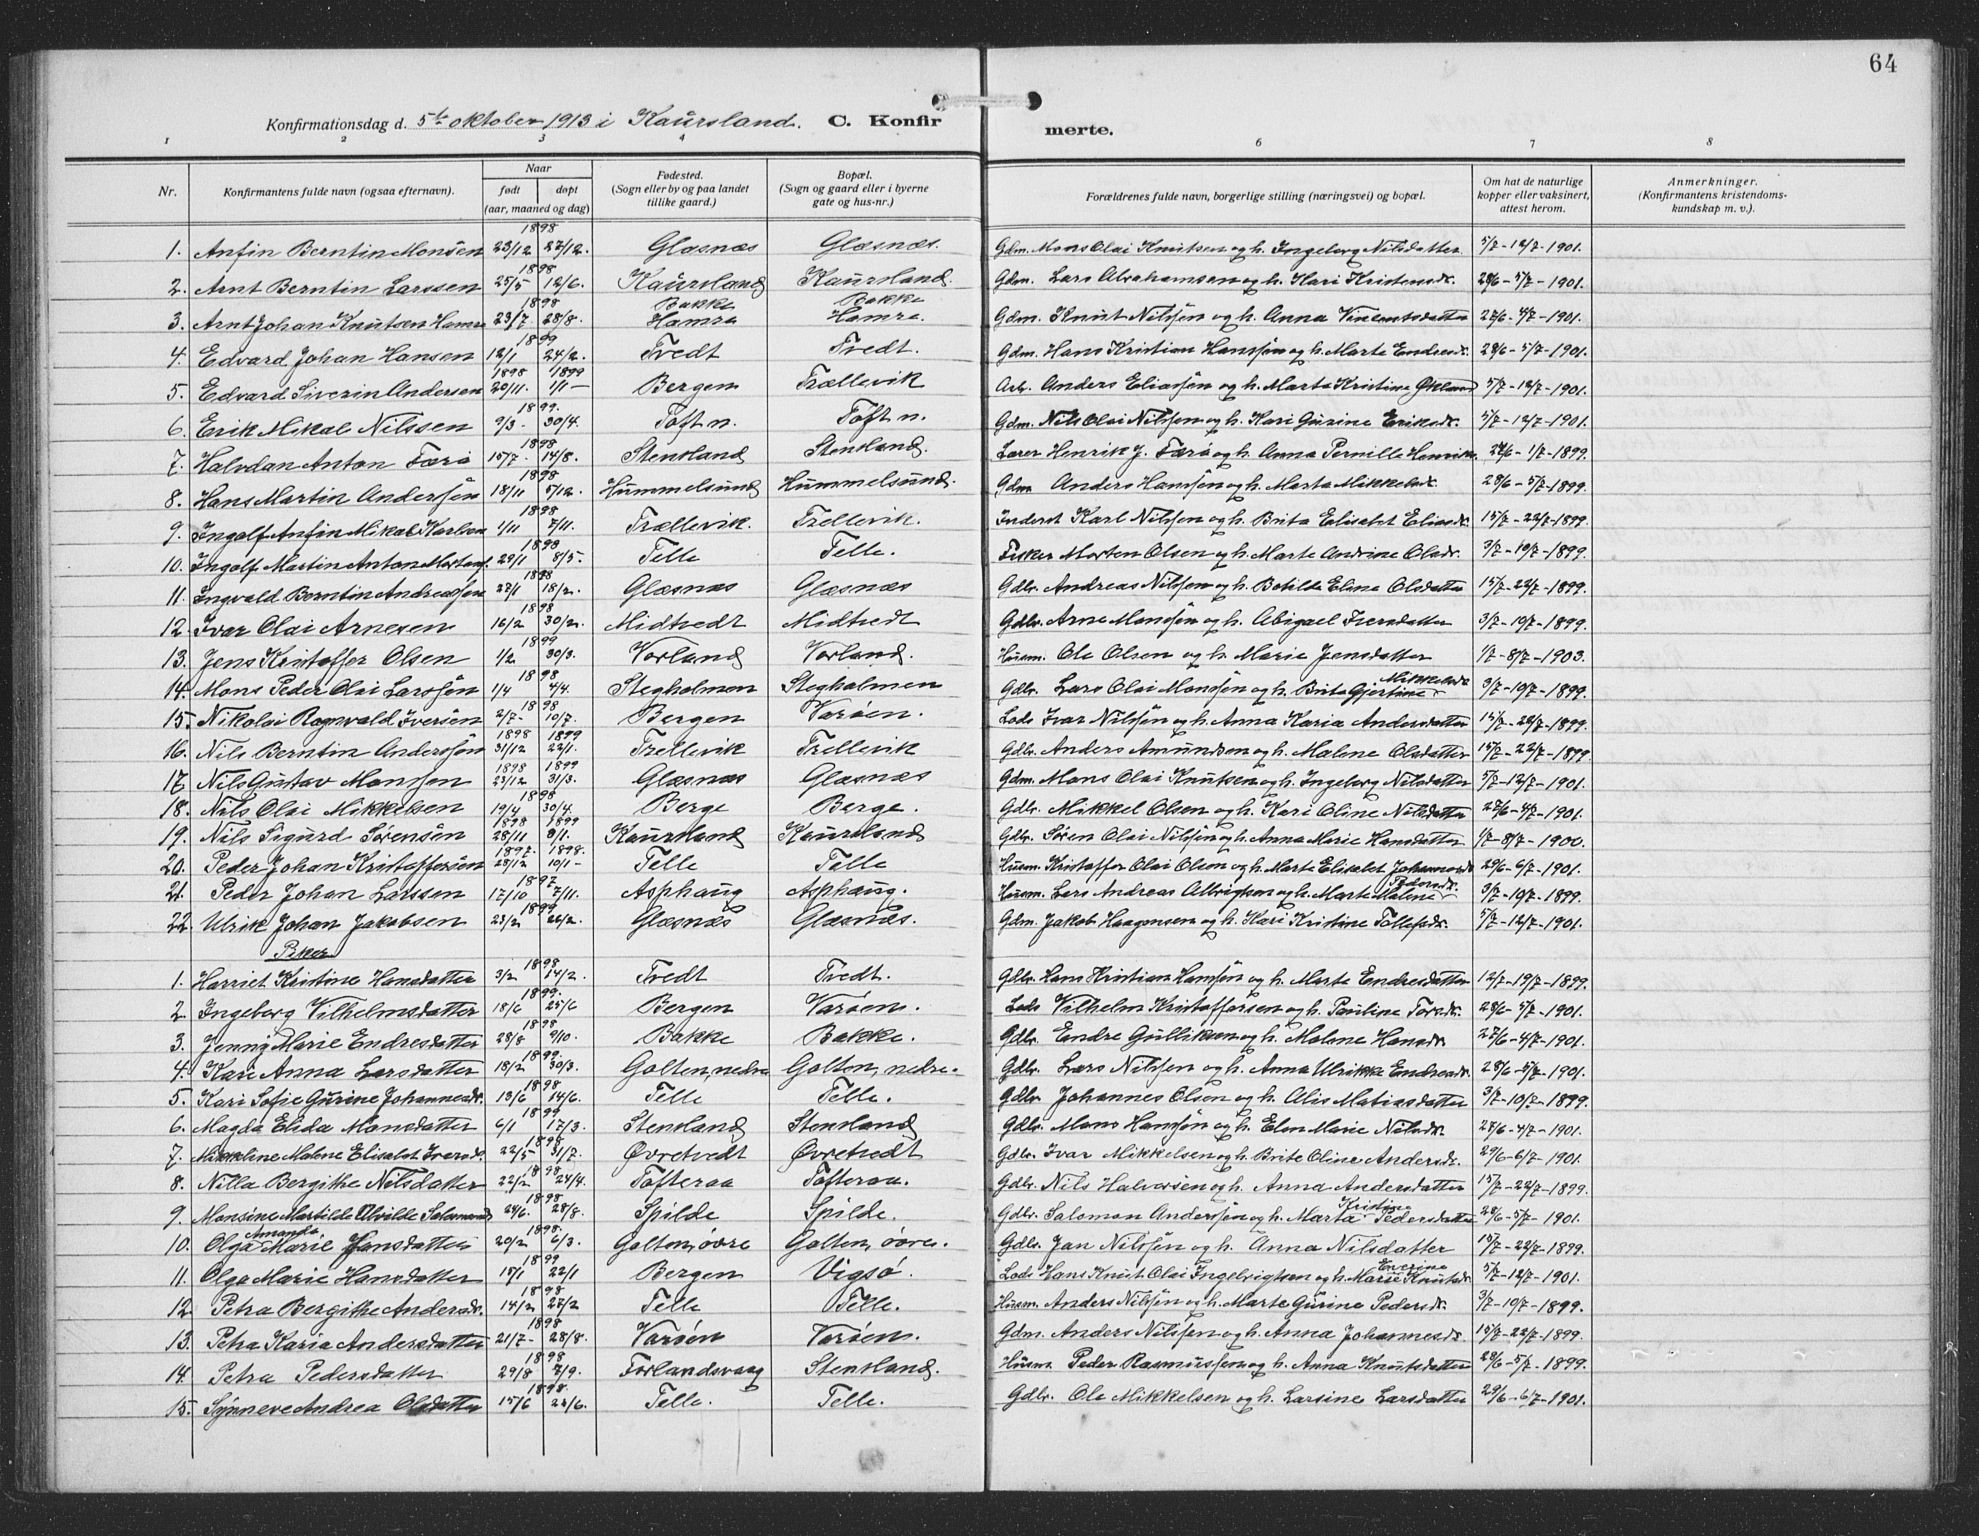 64
Konfirmationsdag d. 5te oktober 1913 i Kaursland. C. Konfir merte.
1 2 3 4 6 7 8
Nr. Konfirmantens fulde navn (ogsaa efternavn). Naar født døpt (aar, maaned og dag) Fødested. (Sogn eller by og paa landet tillike gaard.) Bopæl. (Sogn og gaard eller i byerne gate og hus-nr.) Forældrenes fulde navn, borgerlige stilling (næringsvei) og bopæl. Om hat de naturlige kopper eller vaksinert, attest herom. Anmerkninger. (Konfirmantens kristendomskundskap m. v.).
1. Anfin Berntin Monsen 1898 23/12 27/12. Glæsnæs Glæsnæs. Gdm. Mons Olai Knutsen og h. Ingeborg Nilsdatter 5/7-12/7-1901.
2. Arnt Berntin Larssen 1898 25/5 12/6. Kaursland Kaursland. Gdm. Lars Abrahamsen og h. Kari Kristensdr. 28/6-5/7-1901.
3. Arnt Johan Knutsen Hamre 1898 23/7 28/8. Bakke Hamre Bakke Hamre. Gdm. Knut Nilssen og h. Anna Vincentsdatter 27/6-4/7-1901.
4. Edvard Johan Hansen 1899 12/1 24/2. Tvedt Tvedt. Gdm. Hans Kristian Hanssen og h. Marte Endresdr. 28/6-5/7-1901.
5. Edvard Siverin Andersen 1898 20/11. 1899 1/1- Bergen Trællevik Arb. Anders Eliassen og h. Marta Kristine Økland 5/7-12/7-1901.
6. Erik Mikal Nilssen 1899. 9/3. 30/4. Toft n. Toft n. Gdm. Nils Olai Nilssen og h. Kari Gurine Eriksdr. 5/7-12/7-1901.
7. Halvdan Anton Færø 1898 15/7. 14/8. Stensland Stensland. Lærer Henrik J. Færø og h. Anna Pernille Henriks. 24/6-1/7-1899.
8. Hans Martin Anderssen 1898 18/11 5/12. Hummelsund Hummelsund. Gdm. Anders Hanssen og h. Marta Mikkelsdr. 28/6-5/7-1899.
9. Ingolf Anfin Mikal Karlsen 1898 1/11 7/11. Trællevik. Trellevik. Inderst Karl Nilssen og h. Brita Elisabet Eliasdr. 15/7-22/7-1899.
10. Ingolf Martin Anton Mortens. 1898 29/1 8/5- Telle Telle. Fisker Morten Olsen og h. Marte Andrine Olsdr. 3/7-10/7-1899.
11. Ingvald Berntin Andreassen 1898 27/1 18/2. Glæsnæs Glæsnæs Gdbr. Andreas Nilssen og h. Botilde Elene Olsdatter 15/7-22/7-1899.
12. Ivar Olai Arnesen 1898 16/2 30/2. Midtvedt Midtvedt Gdbr. Arne Monssen og h. Abigael Iversdatter 3/7-10/7-1899.
13. Jens Kristoffer Olsen 1899 1/2 30/3. Vorland Vorland. Husm. Ole Olsen og h. Marie Jensdatter 1/7-8/7-1903.
14. Mons Peder Olai Larssen 1898 1/4 4/4. Stegholmen Stegholmen Gdbr. Lars Olai Monssen og h. Brita Gjertine Mikkelsdr. 3/7-10/7-1899.
15. Nikolai Ragnvald Iversen 1898 2/7- 10/7. Bergen Varøen. Lods Ivar Nilssen og h. Anna Karia Andersdatter 15/7-22/7-1899.
16. Nils Berntin Anderssen 1898 31/12 1899 22/1. Trellevik Trellevik Gdbr. Anders Amundsen og h. Malene Olsdatter 15/7-22/7-1899
17. Nils Gustav Monssen 1898 23/12 1899 31/3. Glæsnæs Glæsnæs Gdm. Mons Olai Knutsen og h. Ingeborg Nilsdatter 5/7-12/7-1901.
18. Nils Olai Mikkelsen 1898 19/4 30/4. Berge Berge. Gdbr. Mikkel Olsen og h. Kari Oline Nilsdatter 27/6-4/7-1901.
19. Nils Sigurd Sørensen 1898 28/11 1899 8/1. Kaursland Kaursland Gdbr. Søren Olai Nilssen og h. Anna Marie Hansdatter 1/7-8/7-1900.
20. Peder Johan Kristoffersen 1897. 28/12 1898. 10/1- Telle Telle Husm. Kristoffer Olai Olsen og h. Marte Elisabet Johannesdr. 29/6-6/7-1901.
21. Peder Johan Larssen 1897 17/10 7/11. Asphaug Asphaug. Husm. Lars Andreas Albrigtsen og h. Marte Malene Pedersdr. 3/7-10/7-1899.
22. Ulrik Johan Jakobsen 1899 23/2 26/2. Glæsnæs Glæsnæs. Gdm. Jakob Haagensen og h. Kari Kristine Tollefsdr. 5/7-12/7-1901.
Piker
1. Harriet Kristine Hansdatter 1898 3/2 14/2. Tvedt Tvedt. Gdbr. Hans Kristian Hanssen og h. Marte Endresdatter 12/7-19/7-1899.
2. Ingeborg Vilhelmsdatter 1899. 18/6 25/6 Bergen Varøen. Lods Vilhelm Kristoffersen og h. Pauline Torsdr. 28/6-5/7-1901.
3. Jenny Marie Endresdatter 1898 28/8 9/10. Bakke Bakke. Gdbr. Endre Gulliksen og h. Malene Hansdr. 27/6-4/7-1901.
4. Kari Anna Larsdatter 1899. 18/2 30/3. Golten, nedre Golten, nedre. Gdbr. Lars Nilssen og h. Anna Ulrikke Endresdr. 28/6-5/7-1901.
5. Kari Sofie Gurine Johannesdr. 1898 13/6 14/6. Telle Telle. Gdbr. Johannes Olsen og h. Alis Matiasdatter 3/7-10/7-1899.
6. Magda Elida Monsdatter 1899 6/1 17/3. Stensland Stensland Gdbr. Mons Hanssen og h. Elen Marie Nilsdr. 27/6-4/7-1901.
7. Mikkeline Malene Elisabet Iversdr. 1898 22/5 31/7. Øvretvedt Øvretvedt Gdbr. Ivar Mikkelsen og h. Brite Oline Andersdr. 29/6-6/7-1901.
8. Nilla Bergithe Nilsdatter 1898 22/2 24/4. Tofteraa Tofteraa. Gdbr. Nils Halvorsen og h. Anna Andersdatter 15/7-22/7-1899.
9. Monsine Martilde Alvilde Salomonsd. 1898. 24/6. 28/8. Spilde Spilde. Gdbr. Salomon Anderssen og h. Marta Kristine Pedersdatter 28/6-5/7-1901.
10. Olga Amanda Marie Jansdatter 1898. 20/2 6/3. Golten, øvre Golten, øvre. Gdbr. Jan Nilssen og h. Anna Nilsdatter 15/7-22/7-1899.
11. Olga Marie Hansdatter 1899 15/1 22/1 Bergen Vigsø. Lods Hans Knut Olai Ingebrigtsen og h. Marie Everine Knutsdr. 5/7-12/7-1901.
12. Petra Bergithe Andersdr. 1898 14/2 27/2 Telle Telle. Husm. Anders Nilssen og h. Marte Gurine Pedersdr. 3/7-10/7-1899.
13. Petra Karia Andersdatter 1898 21/7- 28/8. Varøen Varøen. Gdm. Anders Nilssen og h. Anna Johannesdr. 15/7-22/7-1899.
14. Petra Pedersdatter 1898 29/8 7/9. Forlandsvaag Stensland. Husm. Peder Rasmussen og h. Anna Knutsdatter 28/6-5/7-1899.
15. Synneve Andrea Olsdatter 1898. 15/6 26/6. Telle. Telle. Gdbr. Ole Mikkelsen og h. Larsine Larsdatter 29/6-6/7-1901.